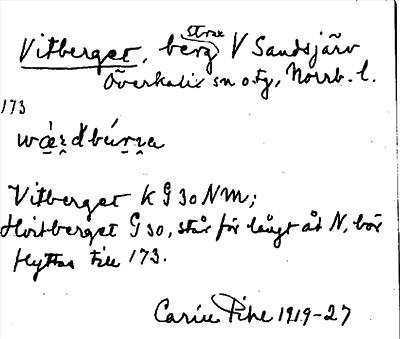 Vitberget, berg strax V Sandsjärv
Överkalix sn o tg, Norrb. l.
173
Vitberget K G 30 NM;
Hvitberget G 30, står för långt åt N, bör
flyttas till 173.
Carin Pihl 1919-27